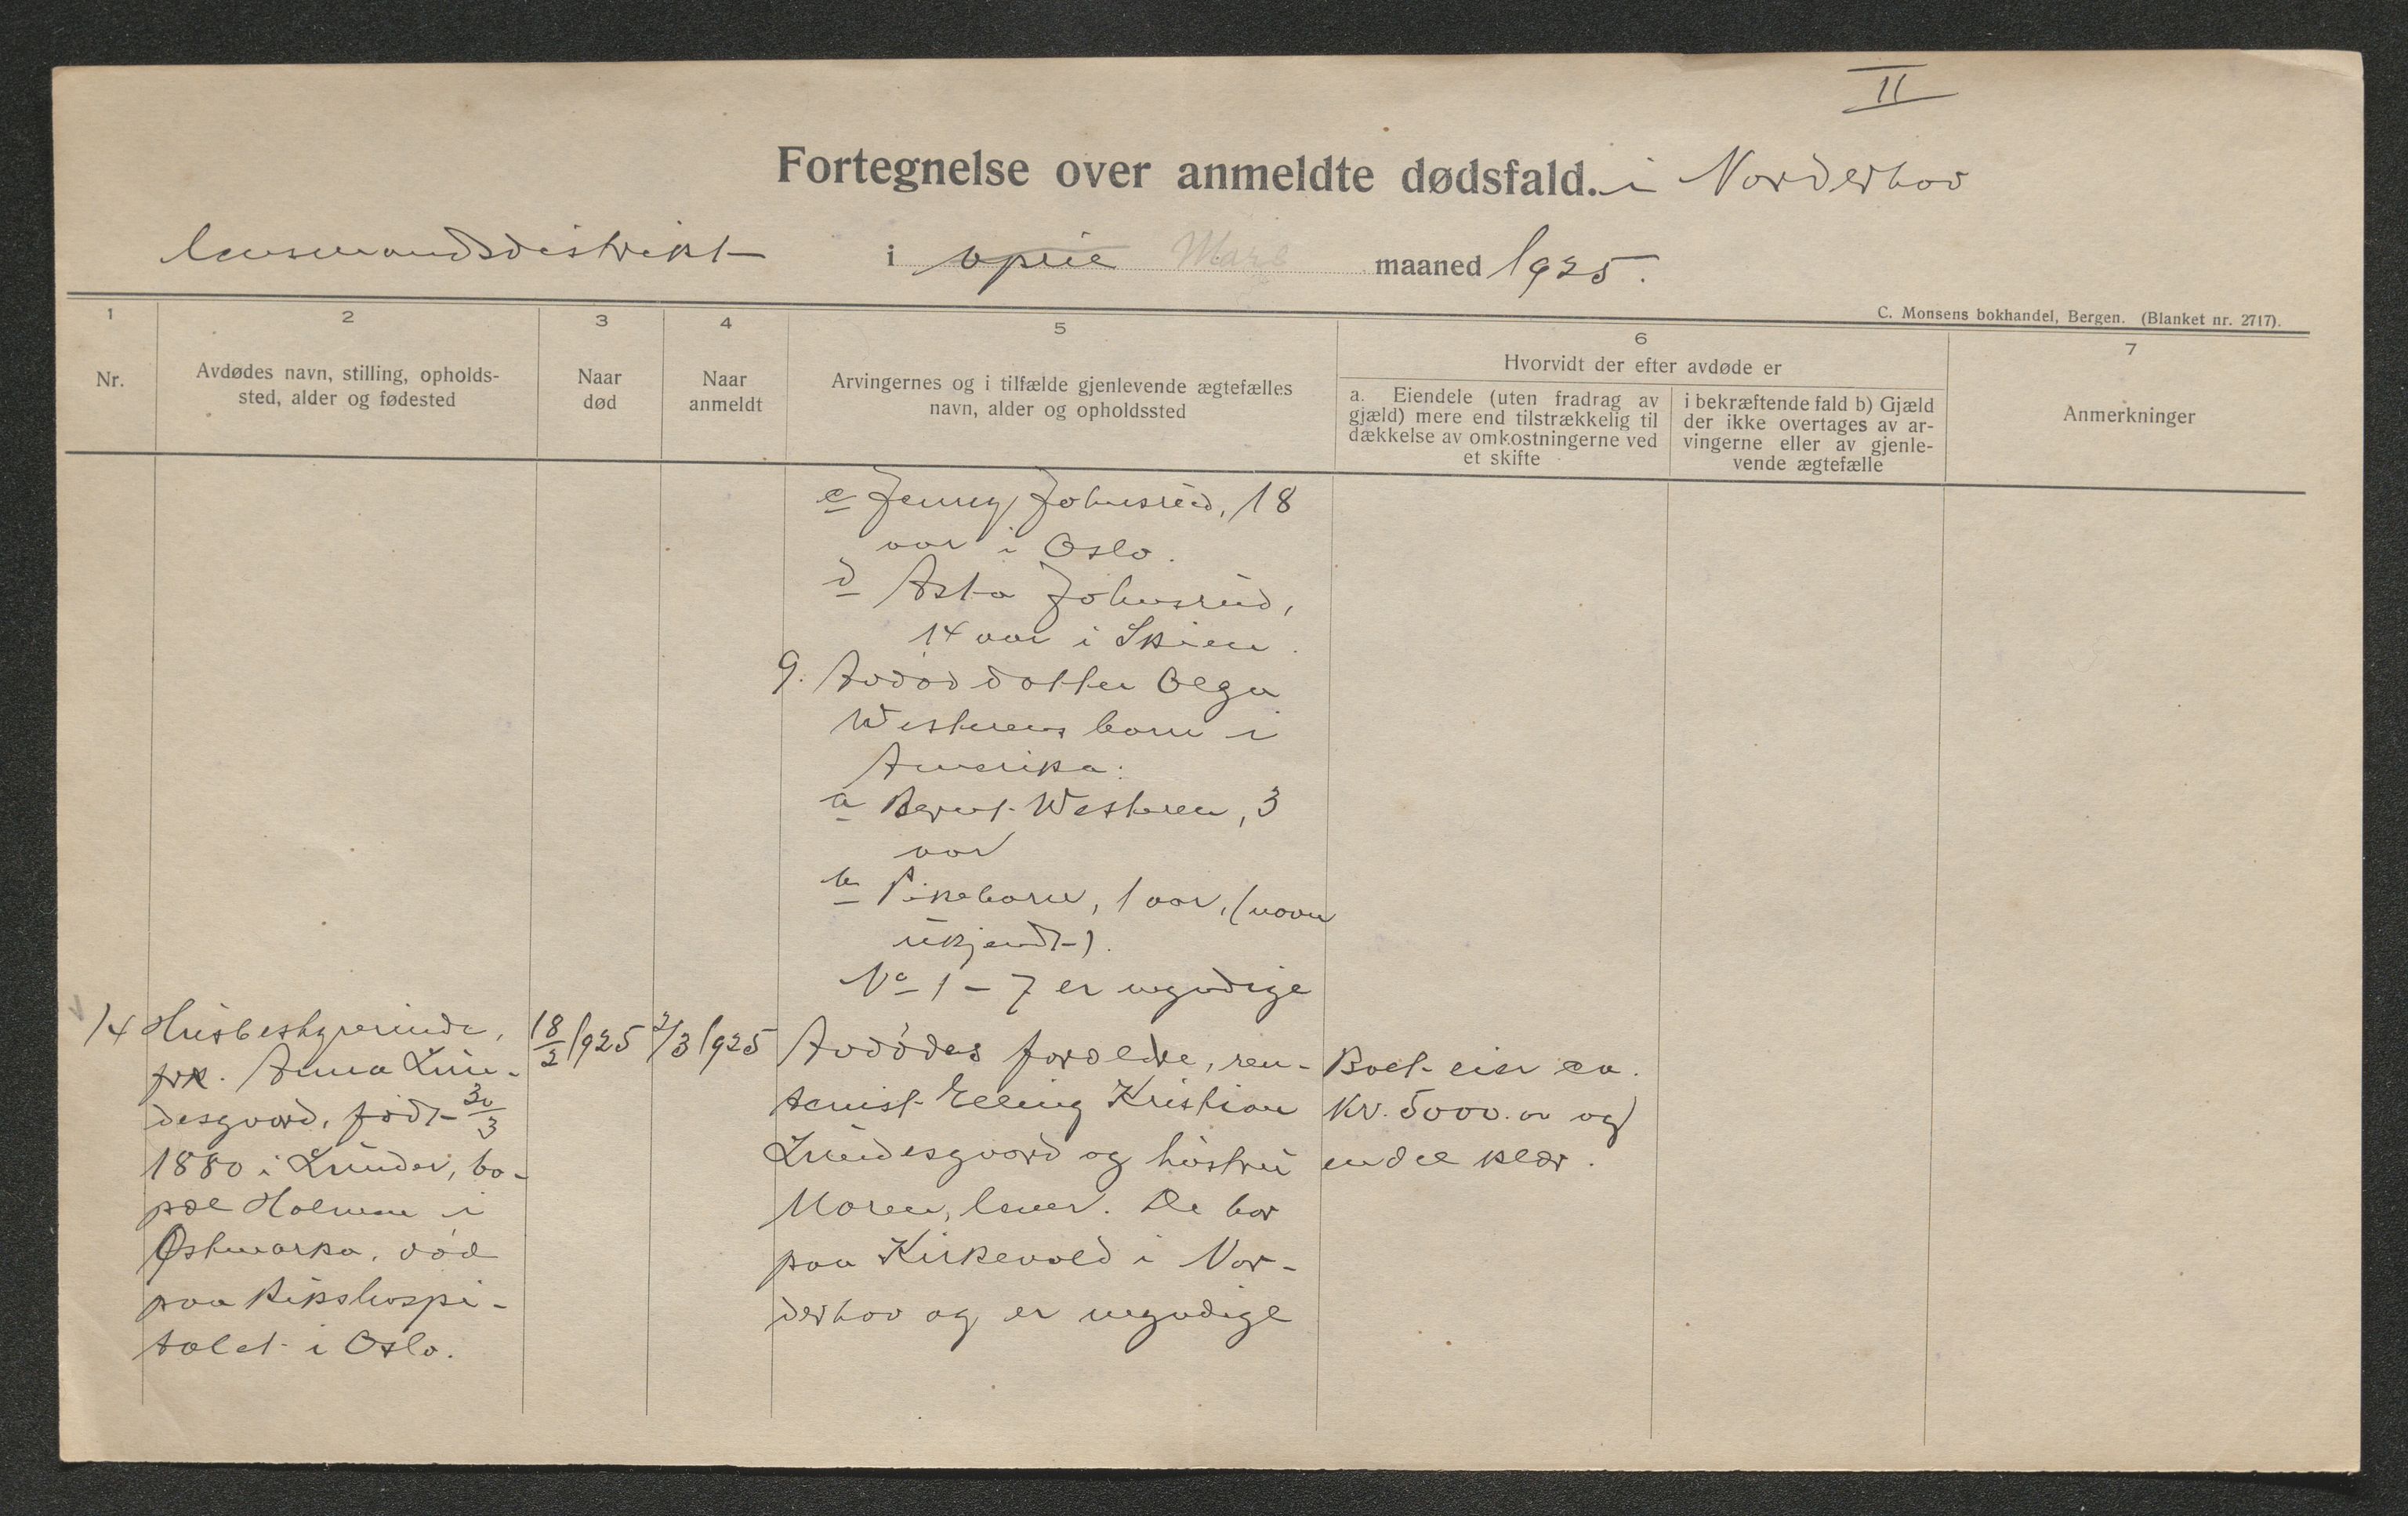 II
Fortegnelse over anmeldte dødsfald. i Norderhov
lensmandsdistrikt i april Mars maaned 1925.
C. Monsens bokhandel, Bergen. (Blanket nr. 2717).
1
Nr.
2
Avdødes navn, stilling, opholds-
sted, alder og fødested
3
Naar
død
4
Naar
anmeldt
5
Arvingernes og i tilfælde gjenlevende ægtefælles
navn, alder og opholdssted
6
Hvorvidt der efter avdøde er
a. Eiendele (uten fradrag av
gjæld) mere end tilstrækkelig til
dækkelse av omkostningerne ved
et skifte
i bekræftende fald b) Gjæld
der ikke overtages av ar-
vingerne eller av gjenle-
vende ægtefælle
7
Anmerkninger
c Jenny Johnsrud, 18
aar i Oslo.
d Asta Johnsrud,
14 aar i Skien.
9. Avdød datter Olga
Westerens barn i
Amerika:
a Bernt Westeren, 3
aar
b Pikebarn, 1 aar, (navn
ukjendt).
No 1 - 7 er myndige
14
Husbestyrerinde,
frk. Anna Lun-
desgaard, født 30/3
1880 i Lunder, bo-
pæl Holmen i
Østmarka, død
paa Rikshospi-
talet i Oslo.
18/2 1925
2/3 1925
Avdødes forældre, ren-
tenist Elling Kristian
Lundesgaard og hustru
Maren, lever. De bor
paa Kirkevold i Nor-
derhov og er myndige
Boet eier ca.
Kr. 5000.00 og
endel klær.